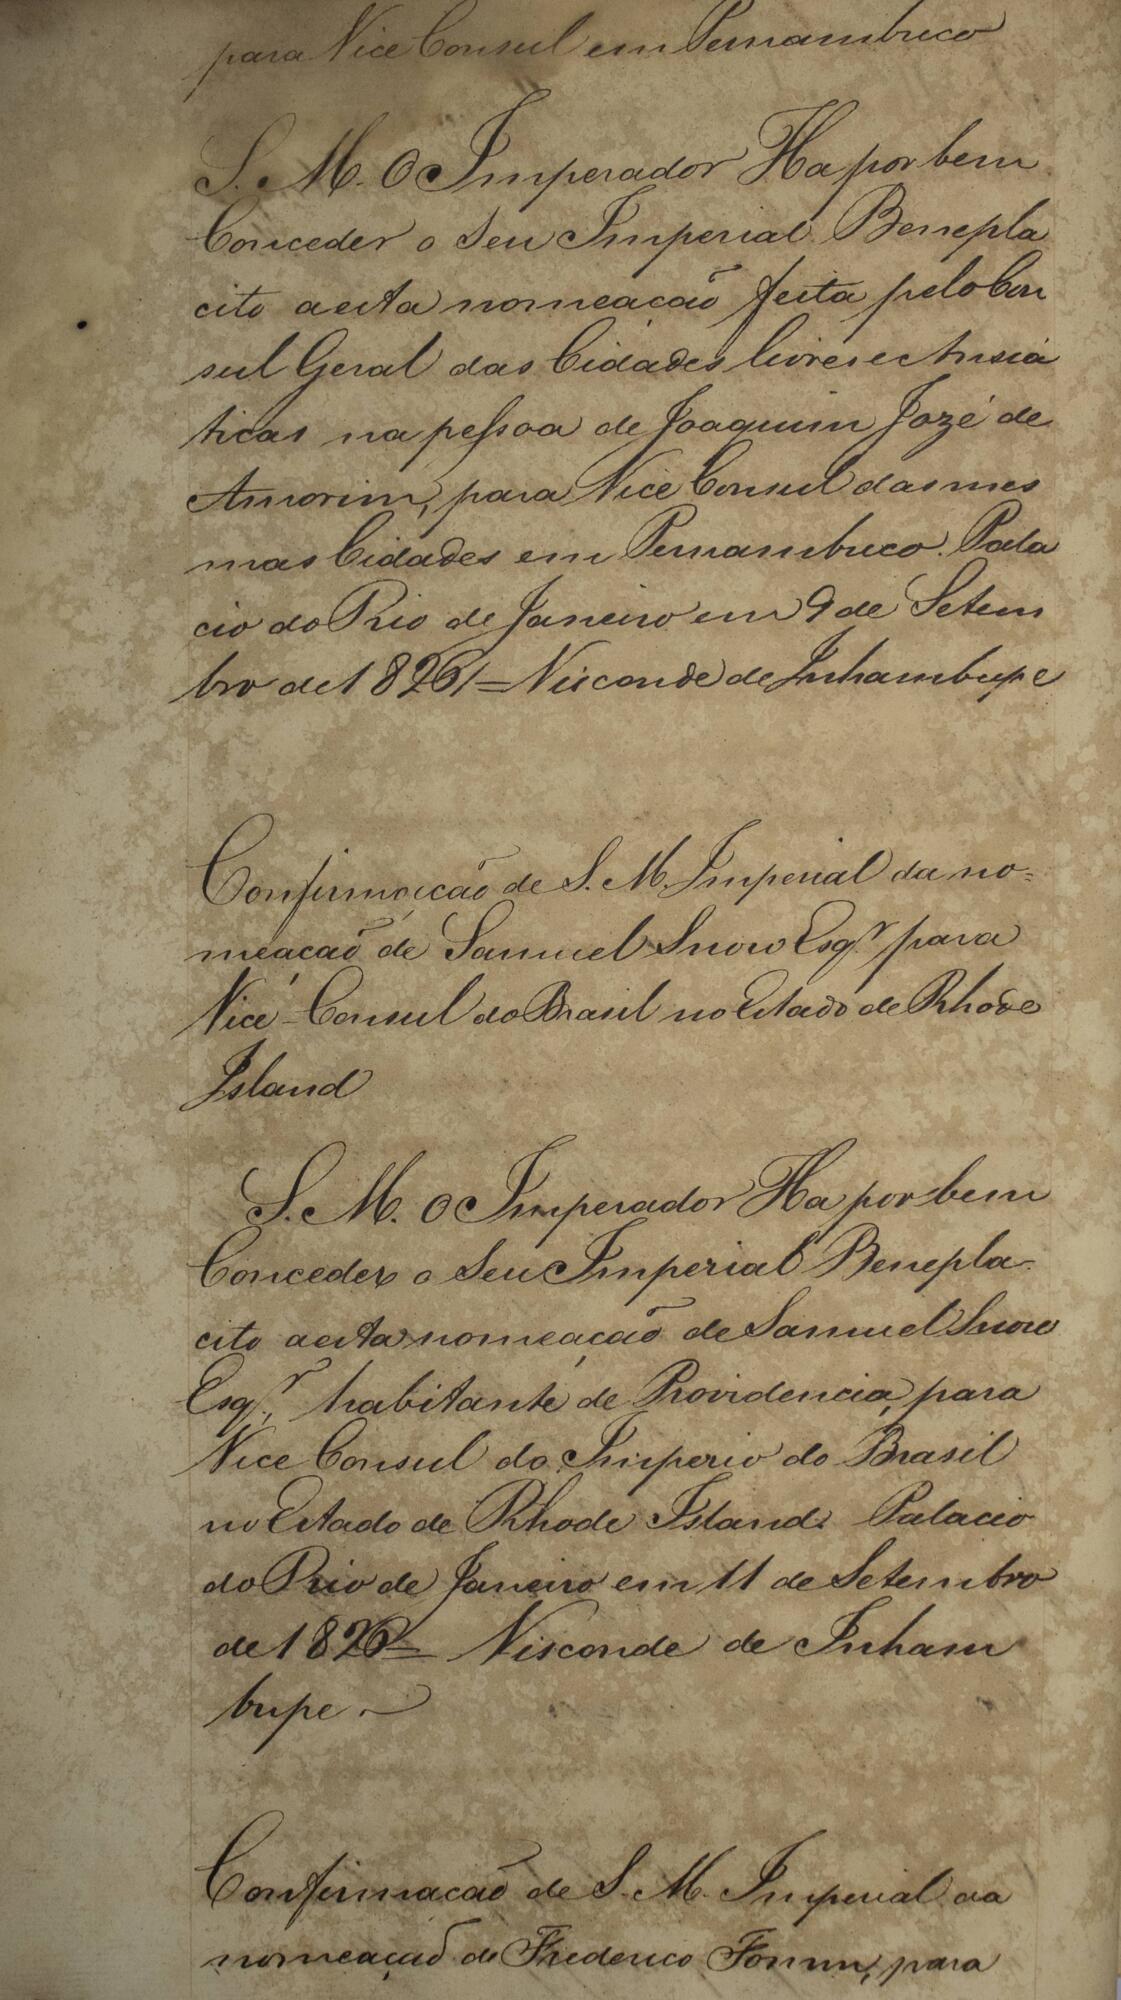 para Vice Consul em Pernambuco
S. M. O Imperador Ha por bem
Conceder o Seu Imperial Benepla
cito a esta nomeação feita pelo Con
sul Geral das Cidades livres e Ansia
ticas na pessoa de Joaquim Jozé de
Amorim, para Vice Consul das mes
mas Cidades em Pernambuco. Pala
cio do Rio de Janeiro em 9 de Setem
bro de 1826 = Visconde de Inhambupe
Confirmação de S. M. Imperial da no=
meação de Samuel Snow Esq.r para
Vice-Consul do Brasil no Estado de Rhode
Island
S. M. O Imperador Ha por bem
Conceder o Seu Imperial Benepla-
cito a esta nomeação de Samuel Snow
Esq.r, habitante de Providencia, para
Vice Consul do Imperio do Brasil
no Estado de Rhode Island. Palacio
do Rio de Janeiro em 11 de Setembro
de 1826 = Visconde de Inham
bupe.
Confirmacaõ de S. M. Imperial da
nomeaçaõ de Frederico Fomm, para